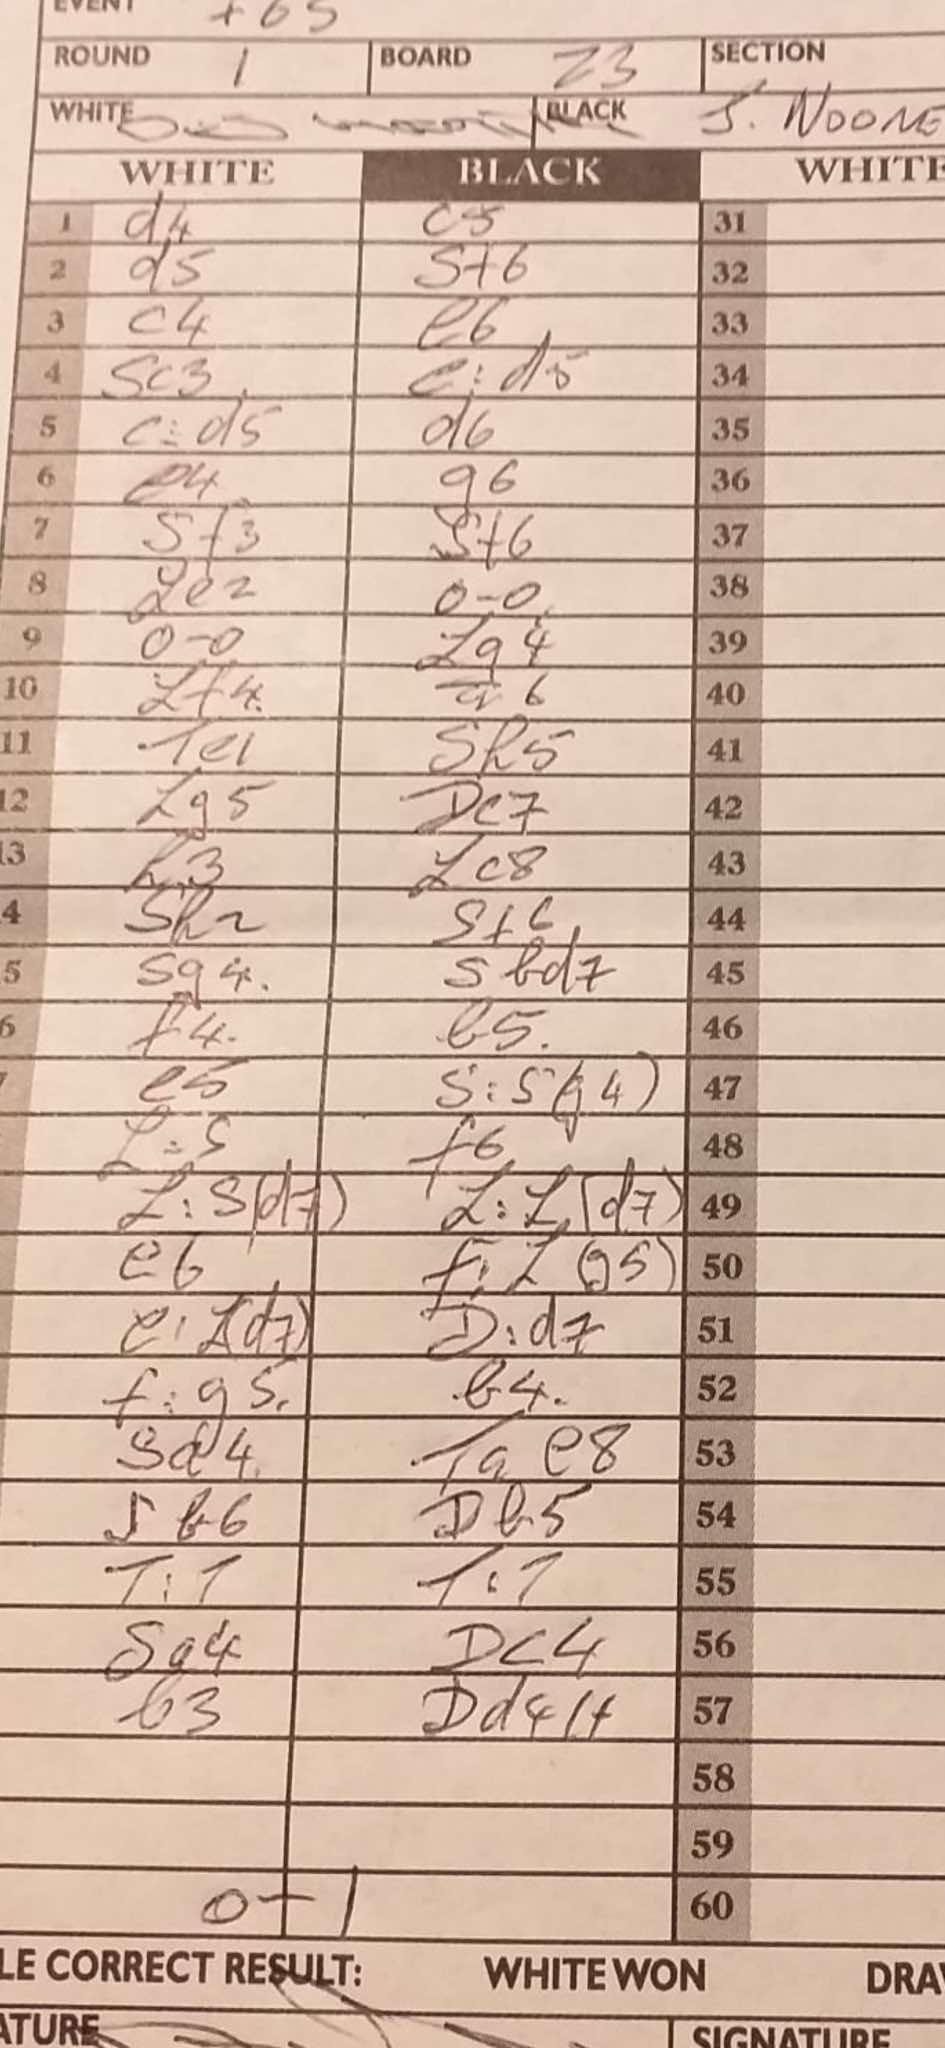 EVENT +65
ROUND 1 BOARD 23 SECTION
WHITE BLACK J. NOONE
WHITE BLACK WHITE
1 d4 c5 31
2 d5 Sf6 32
3 c4 e6 33
4 Sc3 e:d5 34
5 c:d5 d6 35
6 e4 g6 36
7 Sf3 Sf6 37
8 Le2 0-0 38
9 0-0 Lg4 39
10 Lf4 a6 40
11 Te1 Sh5 41
12 Lg5 Dc7 42
13 h3 Lc8 43
4 Sh2 Sf6 44
5 Sg4. Sbd7 45
6 f4. b5. 46
7 e5 S:S(g4) 47
L:S f6 48
L:S(d7) L:L(d7) 49
e6 f:L(g5) 50
e:L(d7) D:d7 51
f:g5. b4. 52
Sa4. Tae8 53
Sb6 Db5 54
T:T T:T 55
Sa4 Dc4 56
b3 Dd4+ 57
58
59
0-1 60
LE CORRECT RESULT: WHITE WON DRA
ATURE SIGNATURE